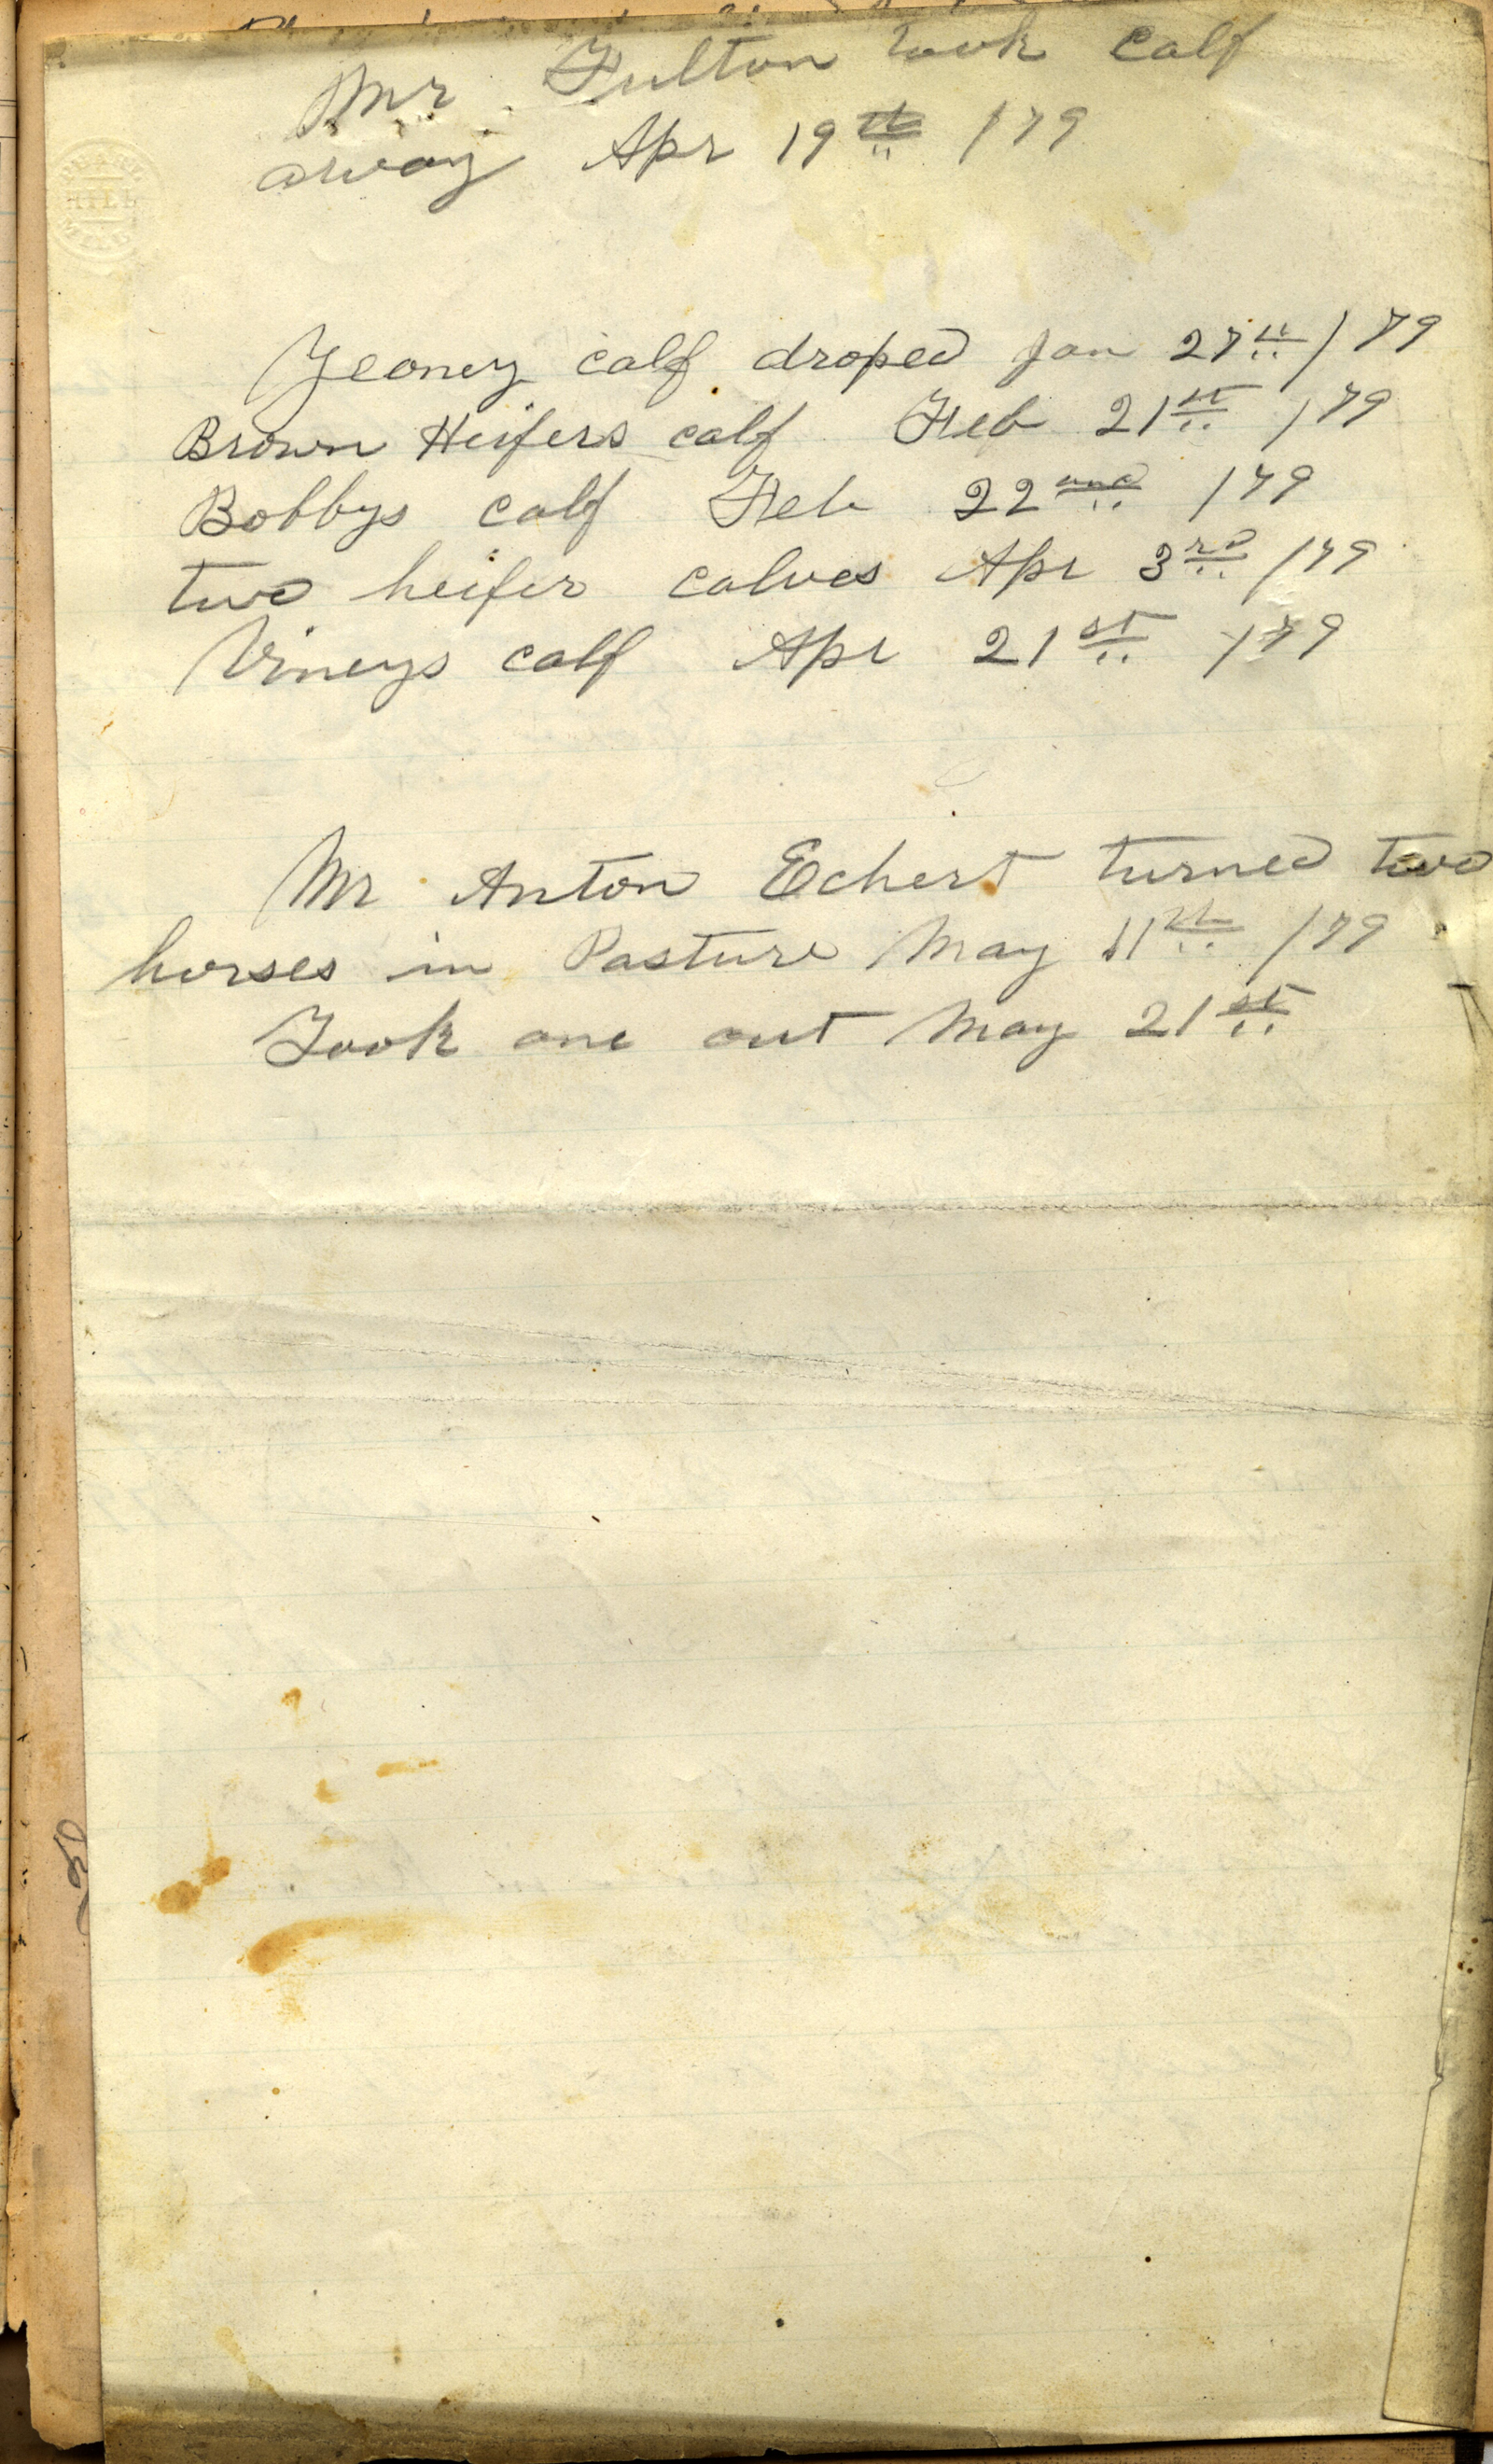 Mr Fulton took calf
away Apr 19th /79
HILL
Jeaney calf droped Jan 27th /79
Brown Heifers calf Feb 21st /79
Bobbys calf Feb 22nd /79
two heifer calves Apr 3rd /79
Vineys calf Apr 21st /79
Mr Anton Echert turned two
horses in Pasture May 11th /79
Took one out May 21st